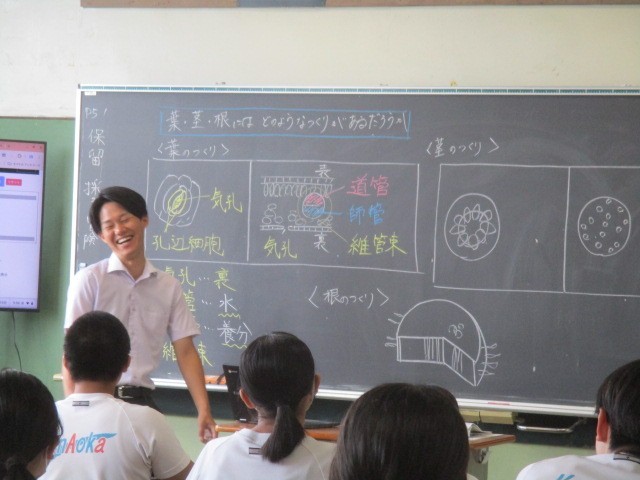 P51
保留
葉・茎・根には どのようなつくりがあるだろうか
〈葉のつくり〉
気孔
孔辺細胞
表
道管
師管
維管束
気孔
裏
〈茎のつくり〉
気孔…裏
管…水
…養分
維管束
〈根のつくり〉
AOKA